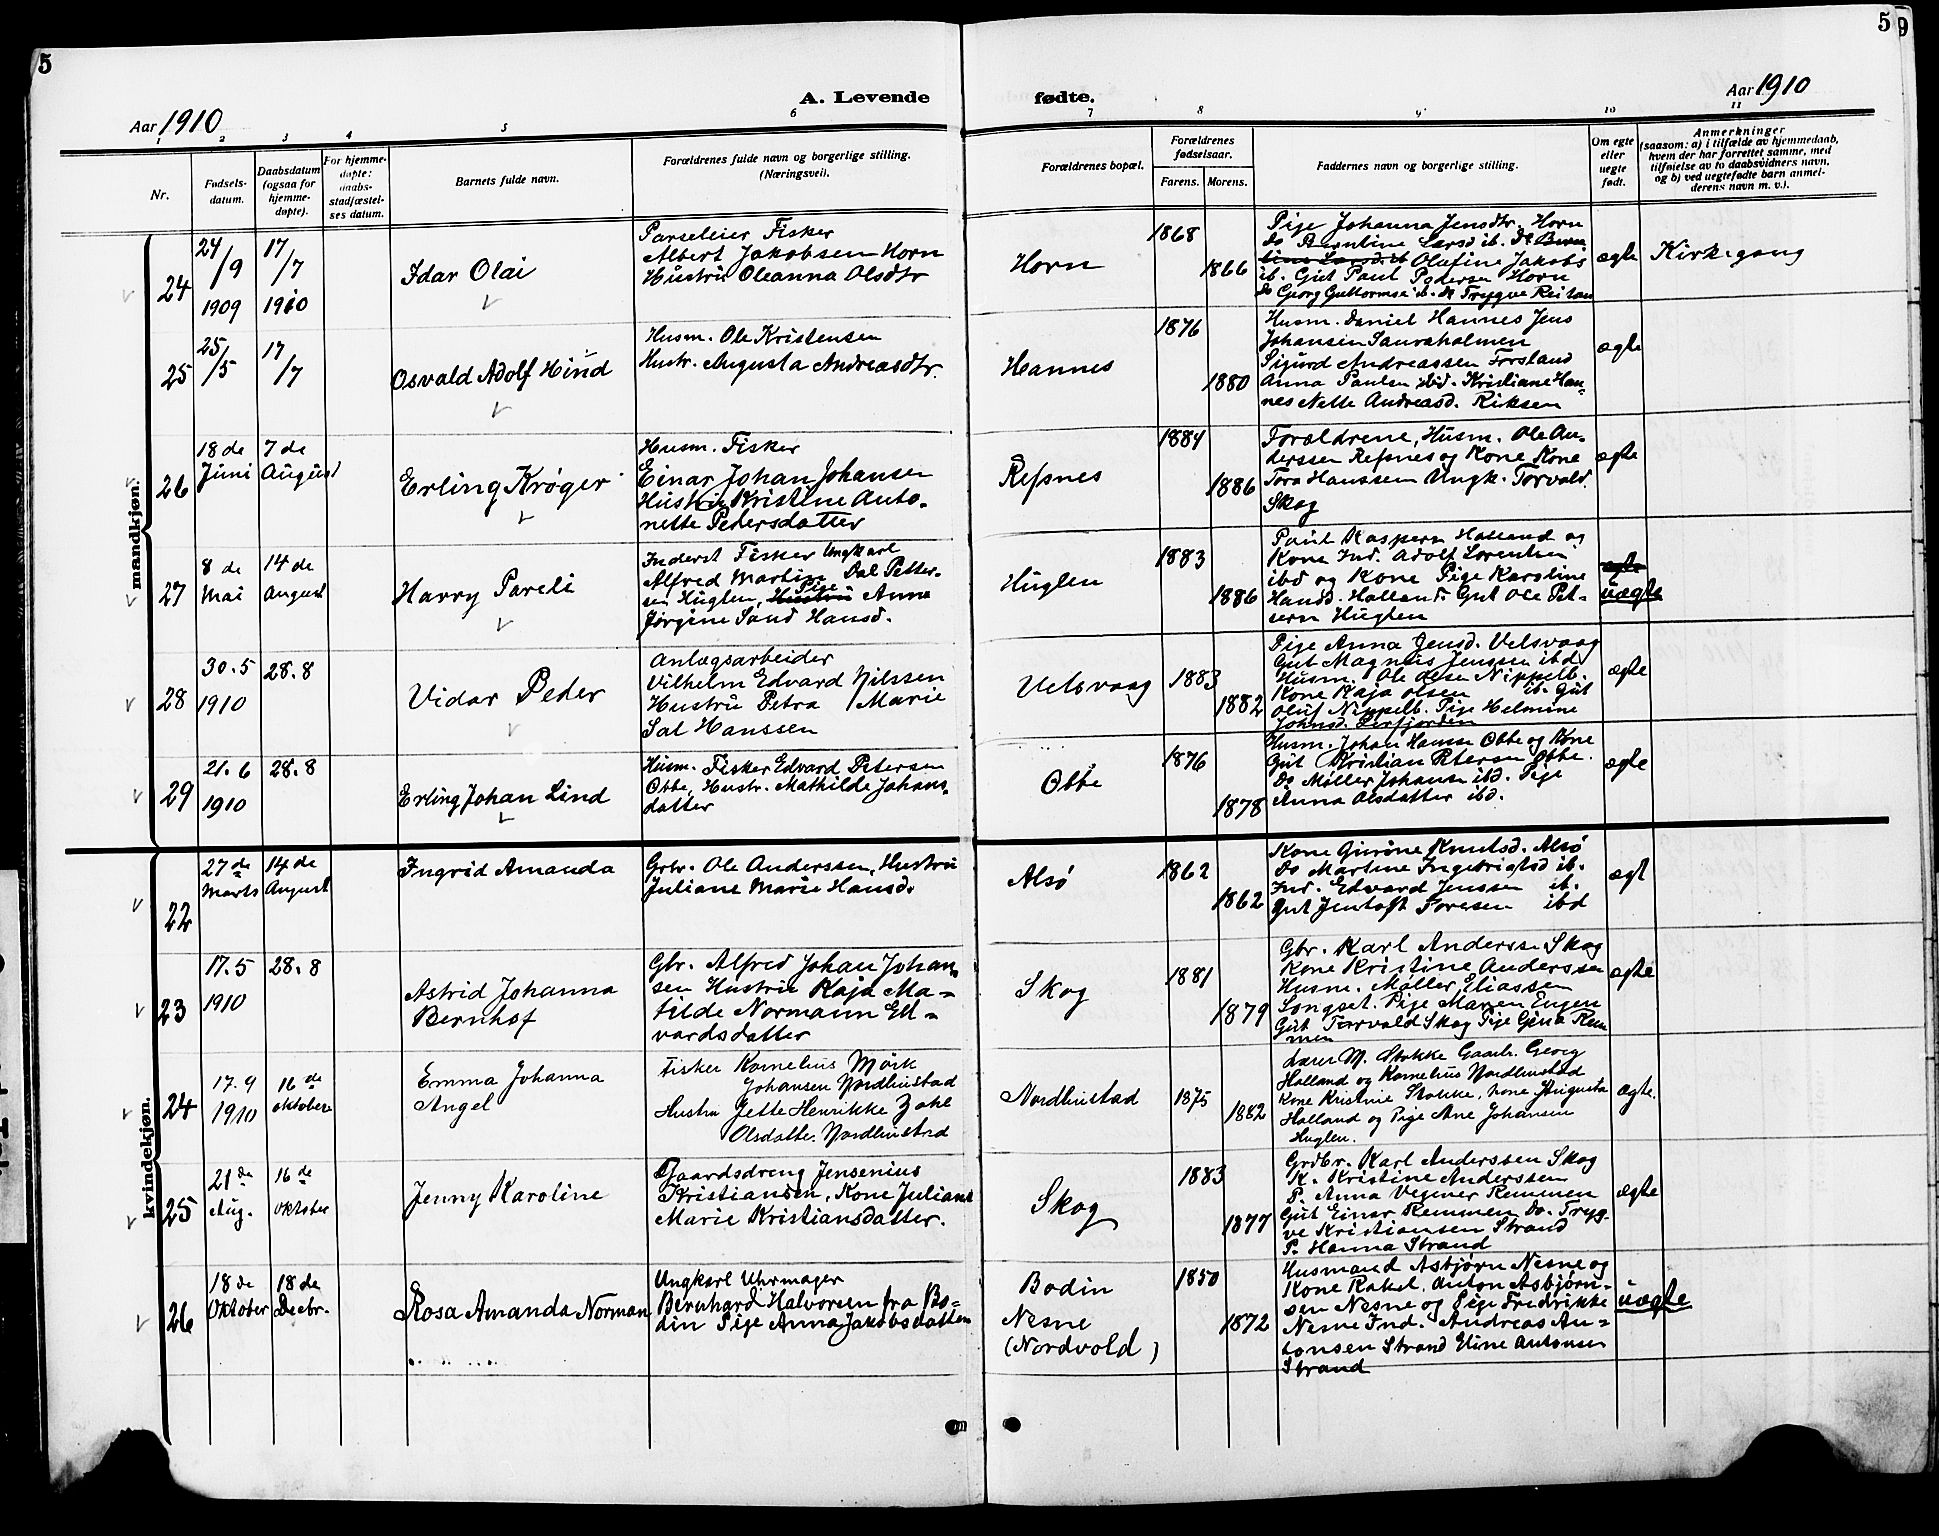 5
5
9
A. Levende fødte.
Aar 1910
Aar 1910
1 2 3 4 5 6 7 8 9 10 11
Nr.
Fødsels-
datum.
Daabsdatum
(ogsaa for
hjemme-
døpte).
For hjemme-
døpte:
daabs-
stadfæstel-
ses datum.
Barnets fulde navn.
Forældrenes fulde navn og borgerlige stilling.
(Næringsvei).
Forældrenes bopæl.
Forældrenes
fødselsaar.
Farens. Morens.
Faddernes navn og borgerlige stilling.
Om egte
eller
uegte
født.
Anmerkninger
(saasom: a) i tilfælde av hjemmedaab,
hvem der har forrettet samme, med
tilføielse av to daabsvidners navn,
og b) ved uegtefødte barn anmel-
derens navn m. v.).
mandkjøn.
24
24/9
1909
17/7
1910
Idar Olai
Parseleier Fisker
Albert Jakobsen Horn
Hustru Oleanna Olsdtr
Horn
1868
1866
Pige Johanna Jensdtr. Horn
Do Berntine Larsd ib. Do Bern
tine Larsd ib Olufine Jakobs
ib. Gut Paul Pedersen Horn
Do Georg Guttormse ib. Do Trygve Reitan
ægte
Kirkegang
25
25/5
17/7
Osvald Adolf Hind
Husm. Ole Kristensen
Hustr. Augusta Andreasdtr.
Hannes
1876
1880
Husm. Daniel Hannes Jens
Johansen Sauraholmen
Sigurd Andreassen Forsland
Anna Paulsen ibid. Kristiane Han-
nes Nette Andreasd. Riksen
ægte
26
18 de
Juni
7 de
August
Erling Krøger
Husm. Fisker
Einar Johan Johansen
Hustru Kristine Anto-
nette Pedersdatter
Refsnes
1884
1886
Forældrene, Husm. Ole An-
derssen Refsnes og Kone Kone
Tora Hanssen Ungk. Torvald
Skog
ægte
27
8 de
Mai
14 de
August
Harry Pareli
Inderst Fisker Ungkarl
Alfred Martin Dal Petter-
sen Hüglen, Hustru Pige Anna
Jørgine Sand Hansd.
Hüglen
1883
1886
Paul Kaspers Halland og
Kone Ind. Adolf Lorentsen
ibd og Kone Pige Karoline
Hansd. Halland. Gut Ole Pet-
sern Hüglen
ægte
uægte
28
30.5
1910
28.8
Vidar Peder
Anlægsarbeider
Vilhelm Edvard Nilssen
Hustru Petra Marie
Sal Hanssen
Velsvaag
1883
1882
Pige Anna Jensd. Velsvaag
Gut Magnus Jenssen ibd
Husm. Ole Olsen Nippelb.
Kone Kaja Olsen ib. Gut
Oluf Nippelb. Pige Helmine
Johnsd.
ægte
29
21.6
1910
28.8
Erling Johan Lind
Husm. Fisker Edvard Petersen
Obbe, Hustr. Mathilde Johans-
datter
Obbe
1876
1878
Husm. Johan Hansse Obbe og Kone
Gut Kristian Petersen Obbe.
Do Møller Johansn ibd. Pige
Anna Olsdatter ibd.
ægte
kvindekjøn.
22
27 de
Marts
14 de
August
Ingrid Amanda
Grbr. Ole Anderssen, Hustru
Juliane Marie Hansd.
Alsø
1862
1862
Kone Gurine Knutsd. Alsø
Do Martine Ingebrigtsd ib.
Ind. Edvard Jenssen ib.
Gut Jentoft Toresen ibd
ægt
23
17.5
1910
28.8
Astrid Johanna
Bernhof
Gbr. Alfred Johan Johan-
sen Hustru Kaja Ma-
tilde Normann Ed-
vardsdatter
Skog
1881
1879
Gbr. Karl Anderss Skog
Kone Kristine Anderssen
Husm. Møller Eliassen
Longset. Pige Maren Eugen
Gut Torvald Skog Pige Gina Rem
men
ægte
24
17.9
1910
16 de
oktober
Emma Johanna
Angel
Fisker Kornelius Mørk
Johansen Nordhustad
Hustru Jette Henrikke Zahl
Olsdatte. Nordhustad
Nordhustad
1875
1882
Lærer M. Stokke Gaarb. Georg
Halland og Kornelius Nordhustad
Kone Kristine Stokke, Kone Augusta
Halland og Pige Ane Johansen
Huglen.
ægte.
25
21 de
Aug.
16 de
oktober
Jenny Karoline
Gaardsdreng Jensenius
Kristiansen, Kone Juliane
Marie Kristiansdatter.
Skog
1883
1877
Grdbr. Karl Anderssen Skog
K. Kristine Anderssen
P. Anna Vegener Remmen
Gut Einar Remmen Do. Tryg-
ve Kristiansen Strand
P. Hanna Strand
ægte
26
18 de
Oktober
18 de
Decbr.
Rosa Amanda Norman
Ungkarl Uhrmager
Bernhard Halvorsen fra Bo-
din Pige Anna Jakobsdatter
Bodin
Nesne
(Nordvold)
1850
1872
Husmand Asbjørn Nesne og
Kone Rakel, Anton Asbjørn-
sen Nesne og Pige Fredrikke
Nesne Ind. Andreas An-
tonsen Strand Eline Antonsen
Strand
uægte